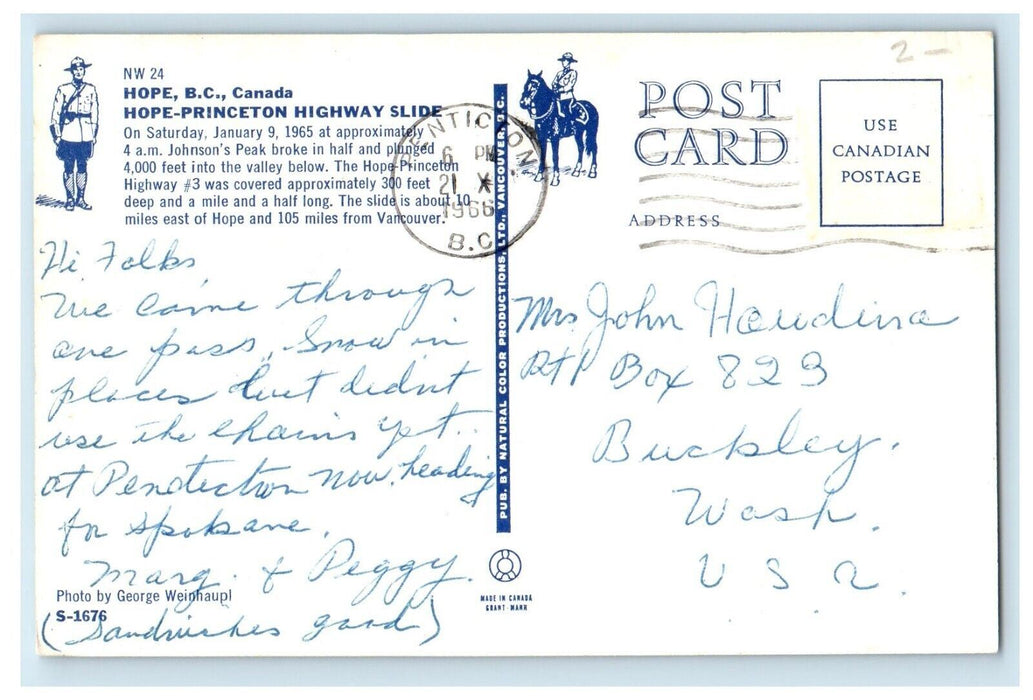 NW 24
HOPE, B.C., Canada
HOPE-PRINCETON HIGHWAY SLIDE
On Saturday, January 9, 1965 at approximately
4 a.m. Johnson's Peak broke in half and plunged
4,000 feet into the valley below. The Hope-Princeton
Highway #3 was covered approximately 300 feet
deep and a mile and a half long. The slide is about 10
miles east of Hope and 105 miles from Vancouver.
Hi Folks
We came through
one pass, Snow in
places but didn't
use the chains yet.
at Pentiction now, heading
for Spokane.
Marg. & Peggy.
Photo by George Weinhaupl
S-1676
(Sandwiches good)
PENTICTON,
6 PM
21 X
1966
B.C.
PUB. BY NATURAL COLOR PRODUCTIONS, LTD., VANCOUVER, B.C.
MADE IN CANADA
GRANT-MANN
2-
POST
CARD
USE
CANADIAN
POSTAGE
ADDRESS
Mrs John Haudina
Rt 1 Box 829
Buckley.
Wash.
U S A.